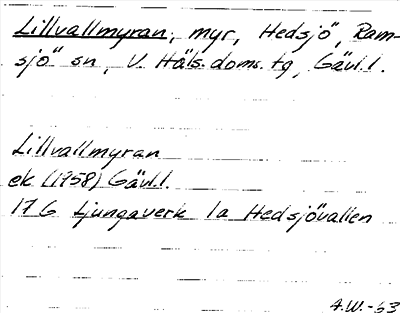 Lillvallmyran, myr, Hedsjö, Ram-
sjö sn, V. Häls. doms. tg, Gävl. l.
Lillvallmyran
ek (1958) Gävl. l.
17 G Ljungaverk 1a Hedsjövallen
A.W. -63